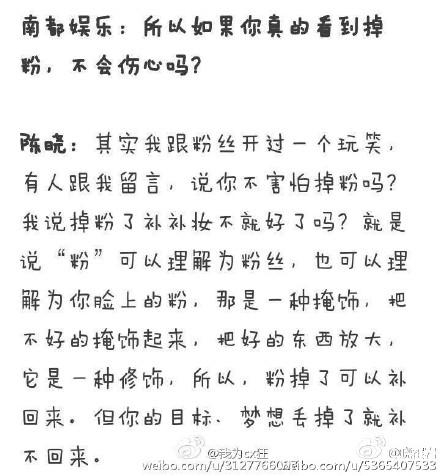 南都娱乐：所以如果你真的看到掉
粉，不会伤心吗？
陈晓：其实我跟粉丝开过一个玩笑，
有人跟我留言，说你不害怕掉粉吗？
我说掉粉了补补妆不就好了吗？就是
说“粉”可以理解为粉丝，也可以理
解为你脸上的粉，那是一种掩饰，把
不好的掩饰起来，把好的东西放大，
它是一种修饰，所以，粉掉了可以补
回来。但你的目标、梦想丢掉了就补
不回来。
@我为cx狂